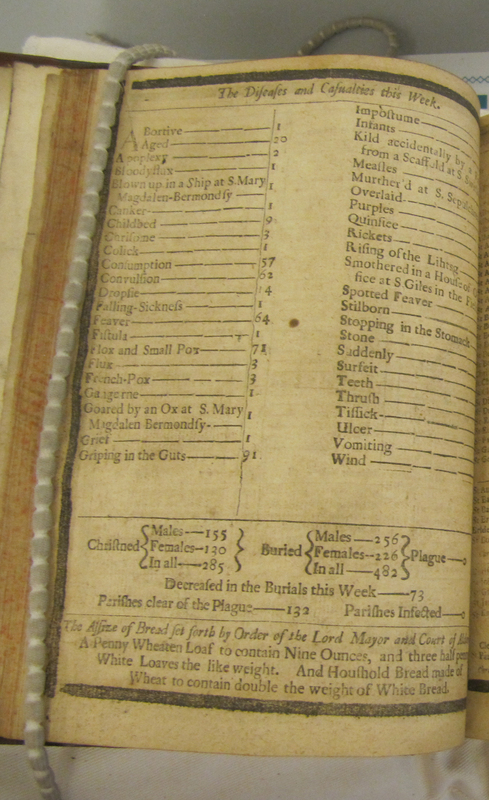 The Diseases and Casualties this Week.
ABortive 1
Aged 20
Apoplexy 2
Bloodyflux 1
Blown up in a Ship at S. Mary
Magdalen-Bermondsy 1
Canker 1
Childbed 9
Chrisome 3
Colick 1
Consumption 57
Convulsion 62
Dropsie 14
Falling-Sickness 1
Feaver 64
Fistula 1
Flox and Small Pox 71
Flux 3
French-Pox 3
Gangrene 1
Goared by an Ox at S. Mary
Magdalen Bermondsy 1
Grief 1
Griping in the Guts 91
Impostume
Infants
Kild accidentally by a
from a Scaffold at S.
Measles
Murther'd at S.
Overlaid
Purples
Quinsie
Rickets
Rising of the Lights
Smothered in a House of
fice at S Giles in the
Spotted Feaver
Stilborn
Stopping in the Stomach
Stone
Suddenly
Surfeit
Teeth
Thrush
Tissick
Ulcer
Vomiting
Wind
Christned { Males 155 Females 130 In all 285 }
Buried { Males 256 Females 226 In all 482 } Plague 0
Decreased in the Burials this Week 73
Parishes clear of the Plague 132 Parishes Infected 0
The Assize of Bread set forth by Order of the Lord Mayor and Court of
A Penny Wheaten Loaf to contain Nine Ounces, and three half-penny
White Loaves the like weight. And Houshold Bread made of
Wheat to contain double the weight of White Bread.